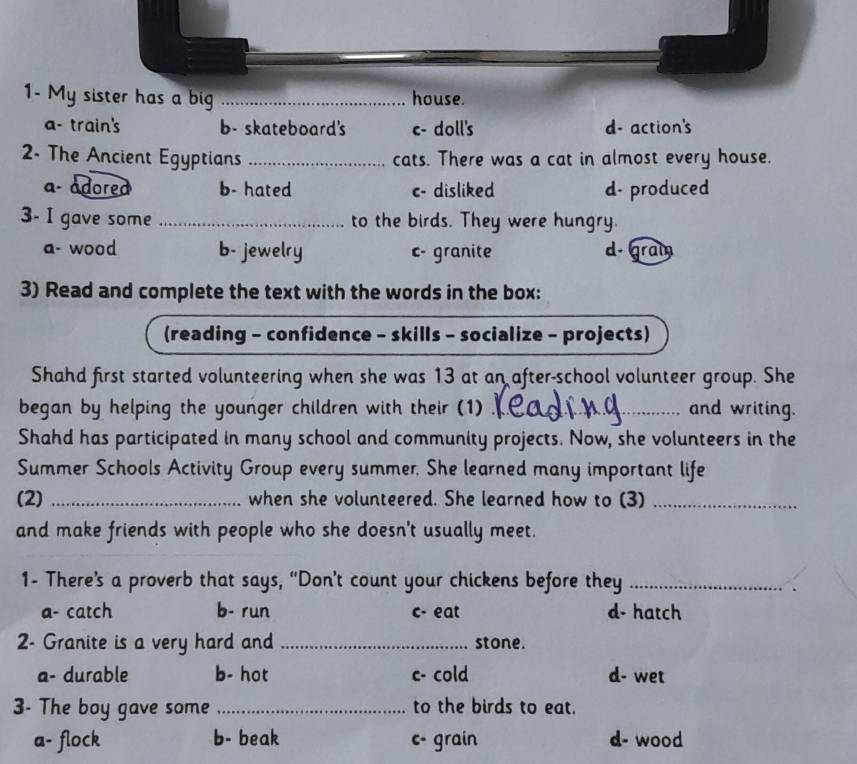 1- My sister has a big .................... house.
a- train's b- skateboard's c- doll's d- action's
2- The Ancient Egyptians .................... cats. There was a cat in almost every house.
a- adored b- hated c- disliked d- produced
3- I gave some .................... to the birds. They were hungry.
a- wood b- jewelry c- granite d- grain
3) Read and complete the text with the words in the box:
(reading - confidence - skills - socialize - projects)
Shahd first started volunteering when she was 13 at an after-school volunteer group. She
began by helping the younger children with their (1) reading .......... and writing.
Shahd has participated in many school and community projects. Now, she volunteers in the
Summer Schools Activity Group every summer. She learned many important life
(2) .................... when she volunteered. She learned how to (3) ....................
and make friends with people who she doesn't usually meet.
1- There's a proverb that says, "Don't count your chickens before they .................... .
a- catch b- run c- eat d- hatch
2- Granite is a very hard and .................... stone.
a- durable b- hot c- cold d- wet
3- The boy gave some .................... to the birds to eat.
a- flock b- beak c- grain d- wood